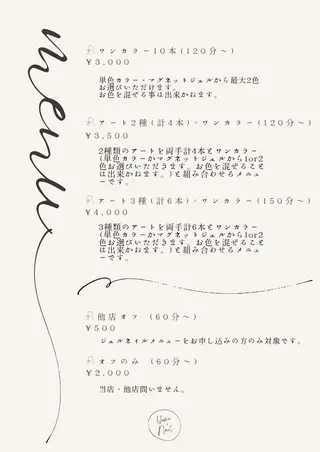 menu
ワンカラー10本(120分〜)
¥3,000
単色カラー・マグネットジェルから最大2色
お選びいただけます。
お色を混ぜる事は出来かねます。
アート2種(計4本)+ワンカラー(120分〜)
¥3,500
2種類のアートを両手計4本とワンカラー
(単色カラーかマグネットジェルから1or2
色お選びいただきます。お色を混ぜること
は出来かねます。)と組み合わせるメニュ
ーです。
アート3種(計6本)+ワンカラー(150分〜)
¥4,000
3種類のアートを両手計6本とワンカラー
(単色カラーかマグネットジェルから1or2
色お選びいただきます。お色を混ぜること
は出来かねます。)と組み合わせるメニュ
ーです。
他店オフ (60分〜)
¥500
ジェルネイルメニューをお申し込みの方のみ対象です。
オフのみ (60分〜)
¥2,000
当店・他店問いません。
Nail